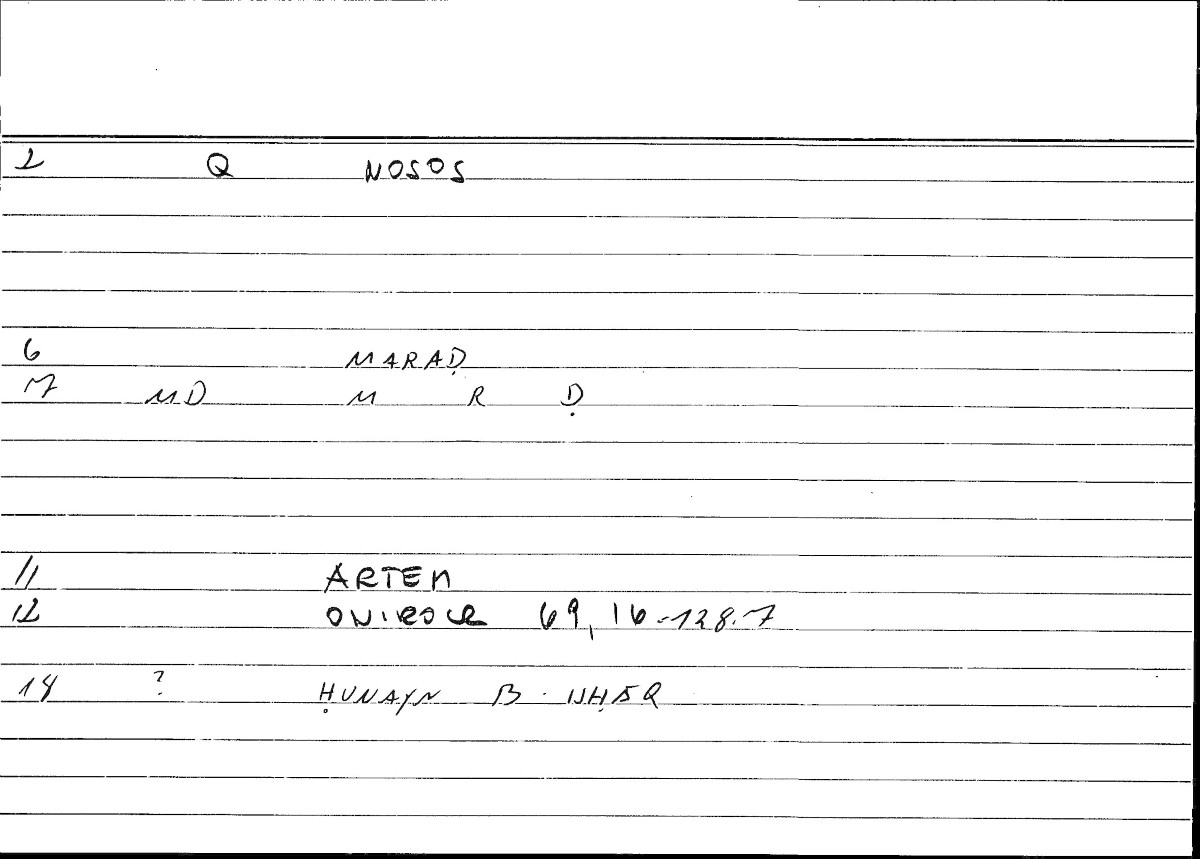 2 Q NOSOS
6 MARAḌ
7 MD M R Ḍ
11 ARTEM
12 ONIROCR 69,16-128.7
14 ? ḤUNAYN B. ISḤĀQ